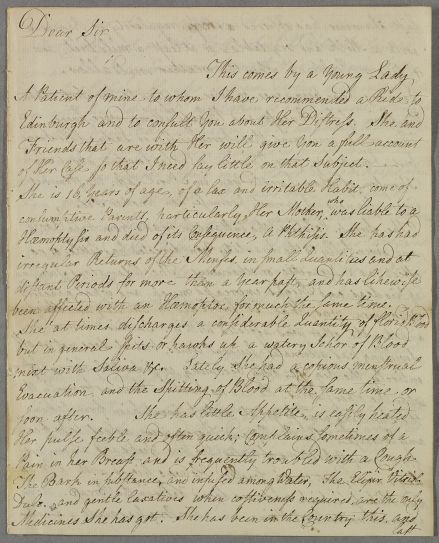 Dear Sir
This comes by a Young Lady
A Patient of mine to whom I have recommended a Ride to
Edinburgh and to consult You about Her Distress. She and
Friends that are with Her will give You a full account
of Her Case so that I need say little on that Subject.
She is 16 Years of age, of a lax and irritable Habit, come of
consumptive Parents, particularly Her Mother, who was liable to a
Hæmoptysis and died of its Consequence, a Phthisis. She has had
irregular Returns of the Menses, in small Quantities and at
distant Periods for more than a Year past, and has likewise
been affected with an Hæmoptoe, for much the same time.
She at times discharges a considerable Quantity of florid
but in general spits or hawks up a watery Ichor or Blood
mixt with Saliva &c. Lately, She had a copious menstrual
Evacuation, and the Spitting of Blood at the same time, or
soon after. She has little Appetite, is easily heated
Her pulse feeble and often quick; Complains sometimes of a
Pain in her Breast, and is frequently troubled with a Cough
The Bark in substance, and infused among Water, The Elixir Vitriol:
Dulc. and gentle Laxatives when costiveness required, are the only
Medicines She has got. She has been in the Country this, and
last